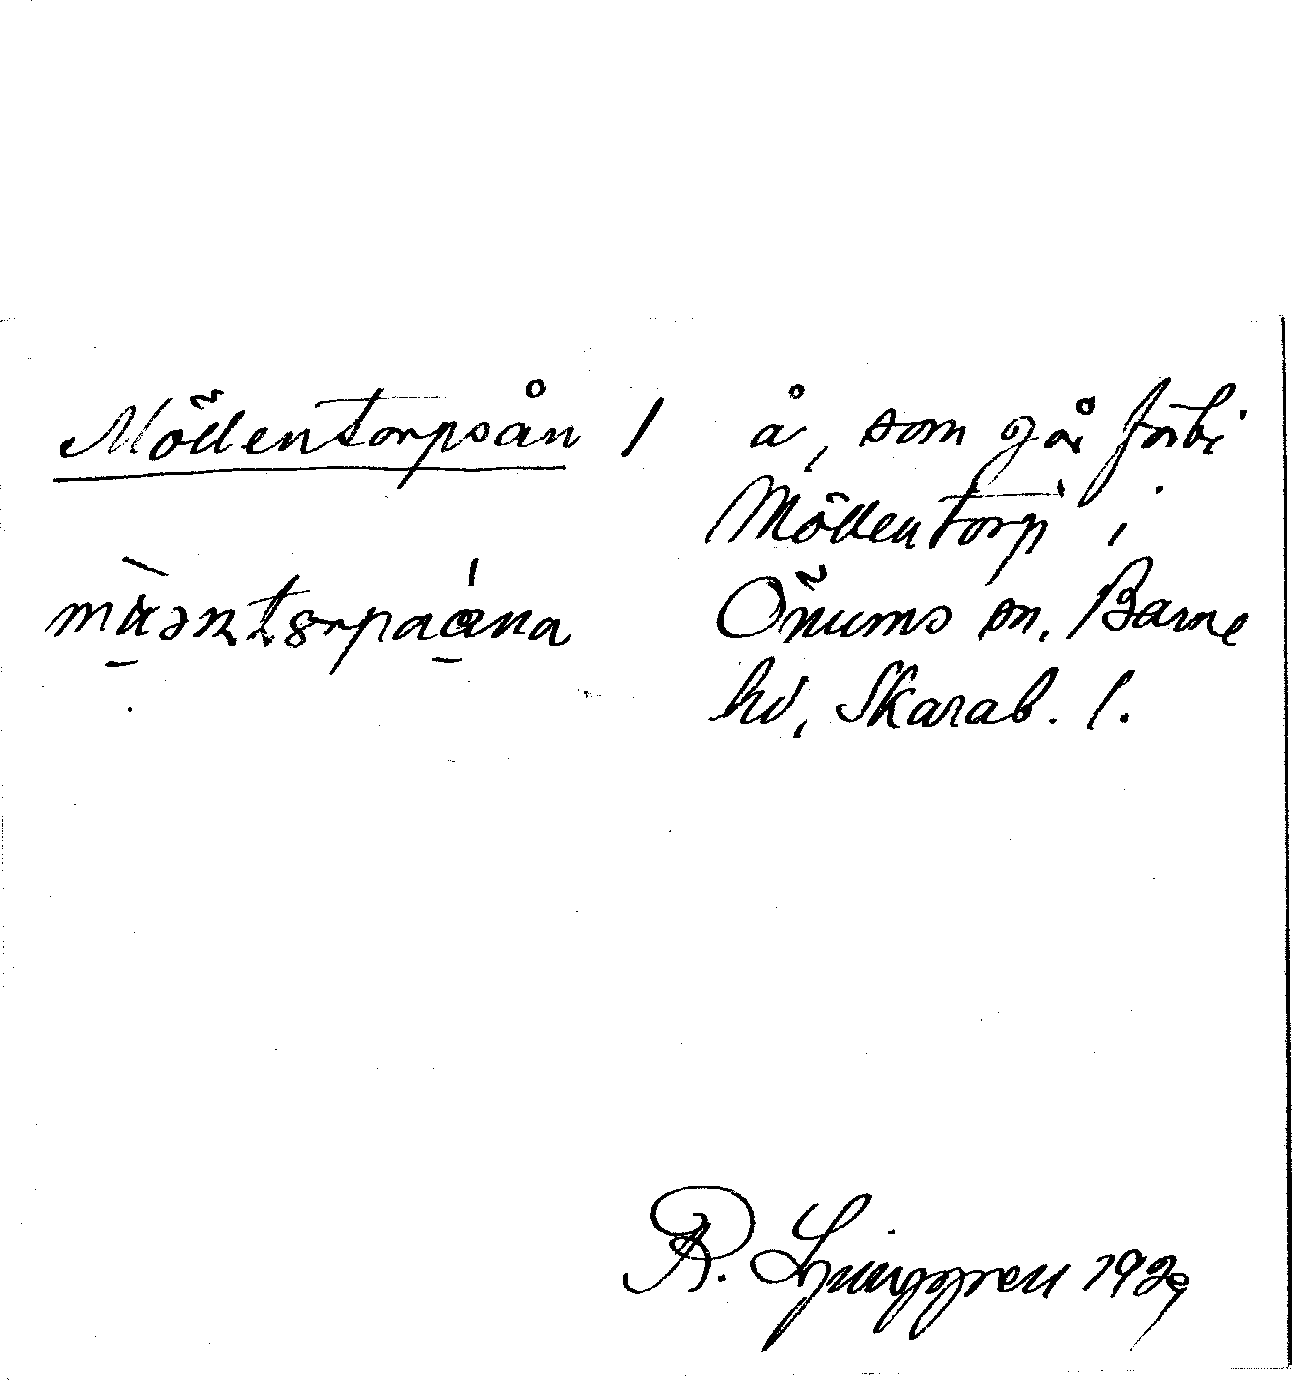 Möllentorpsån /
å, som går förbi
Möllentorp i
Önums sn. Barne
hd, Skarab. l.
R. Ljunggren 1929